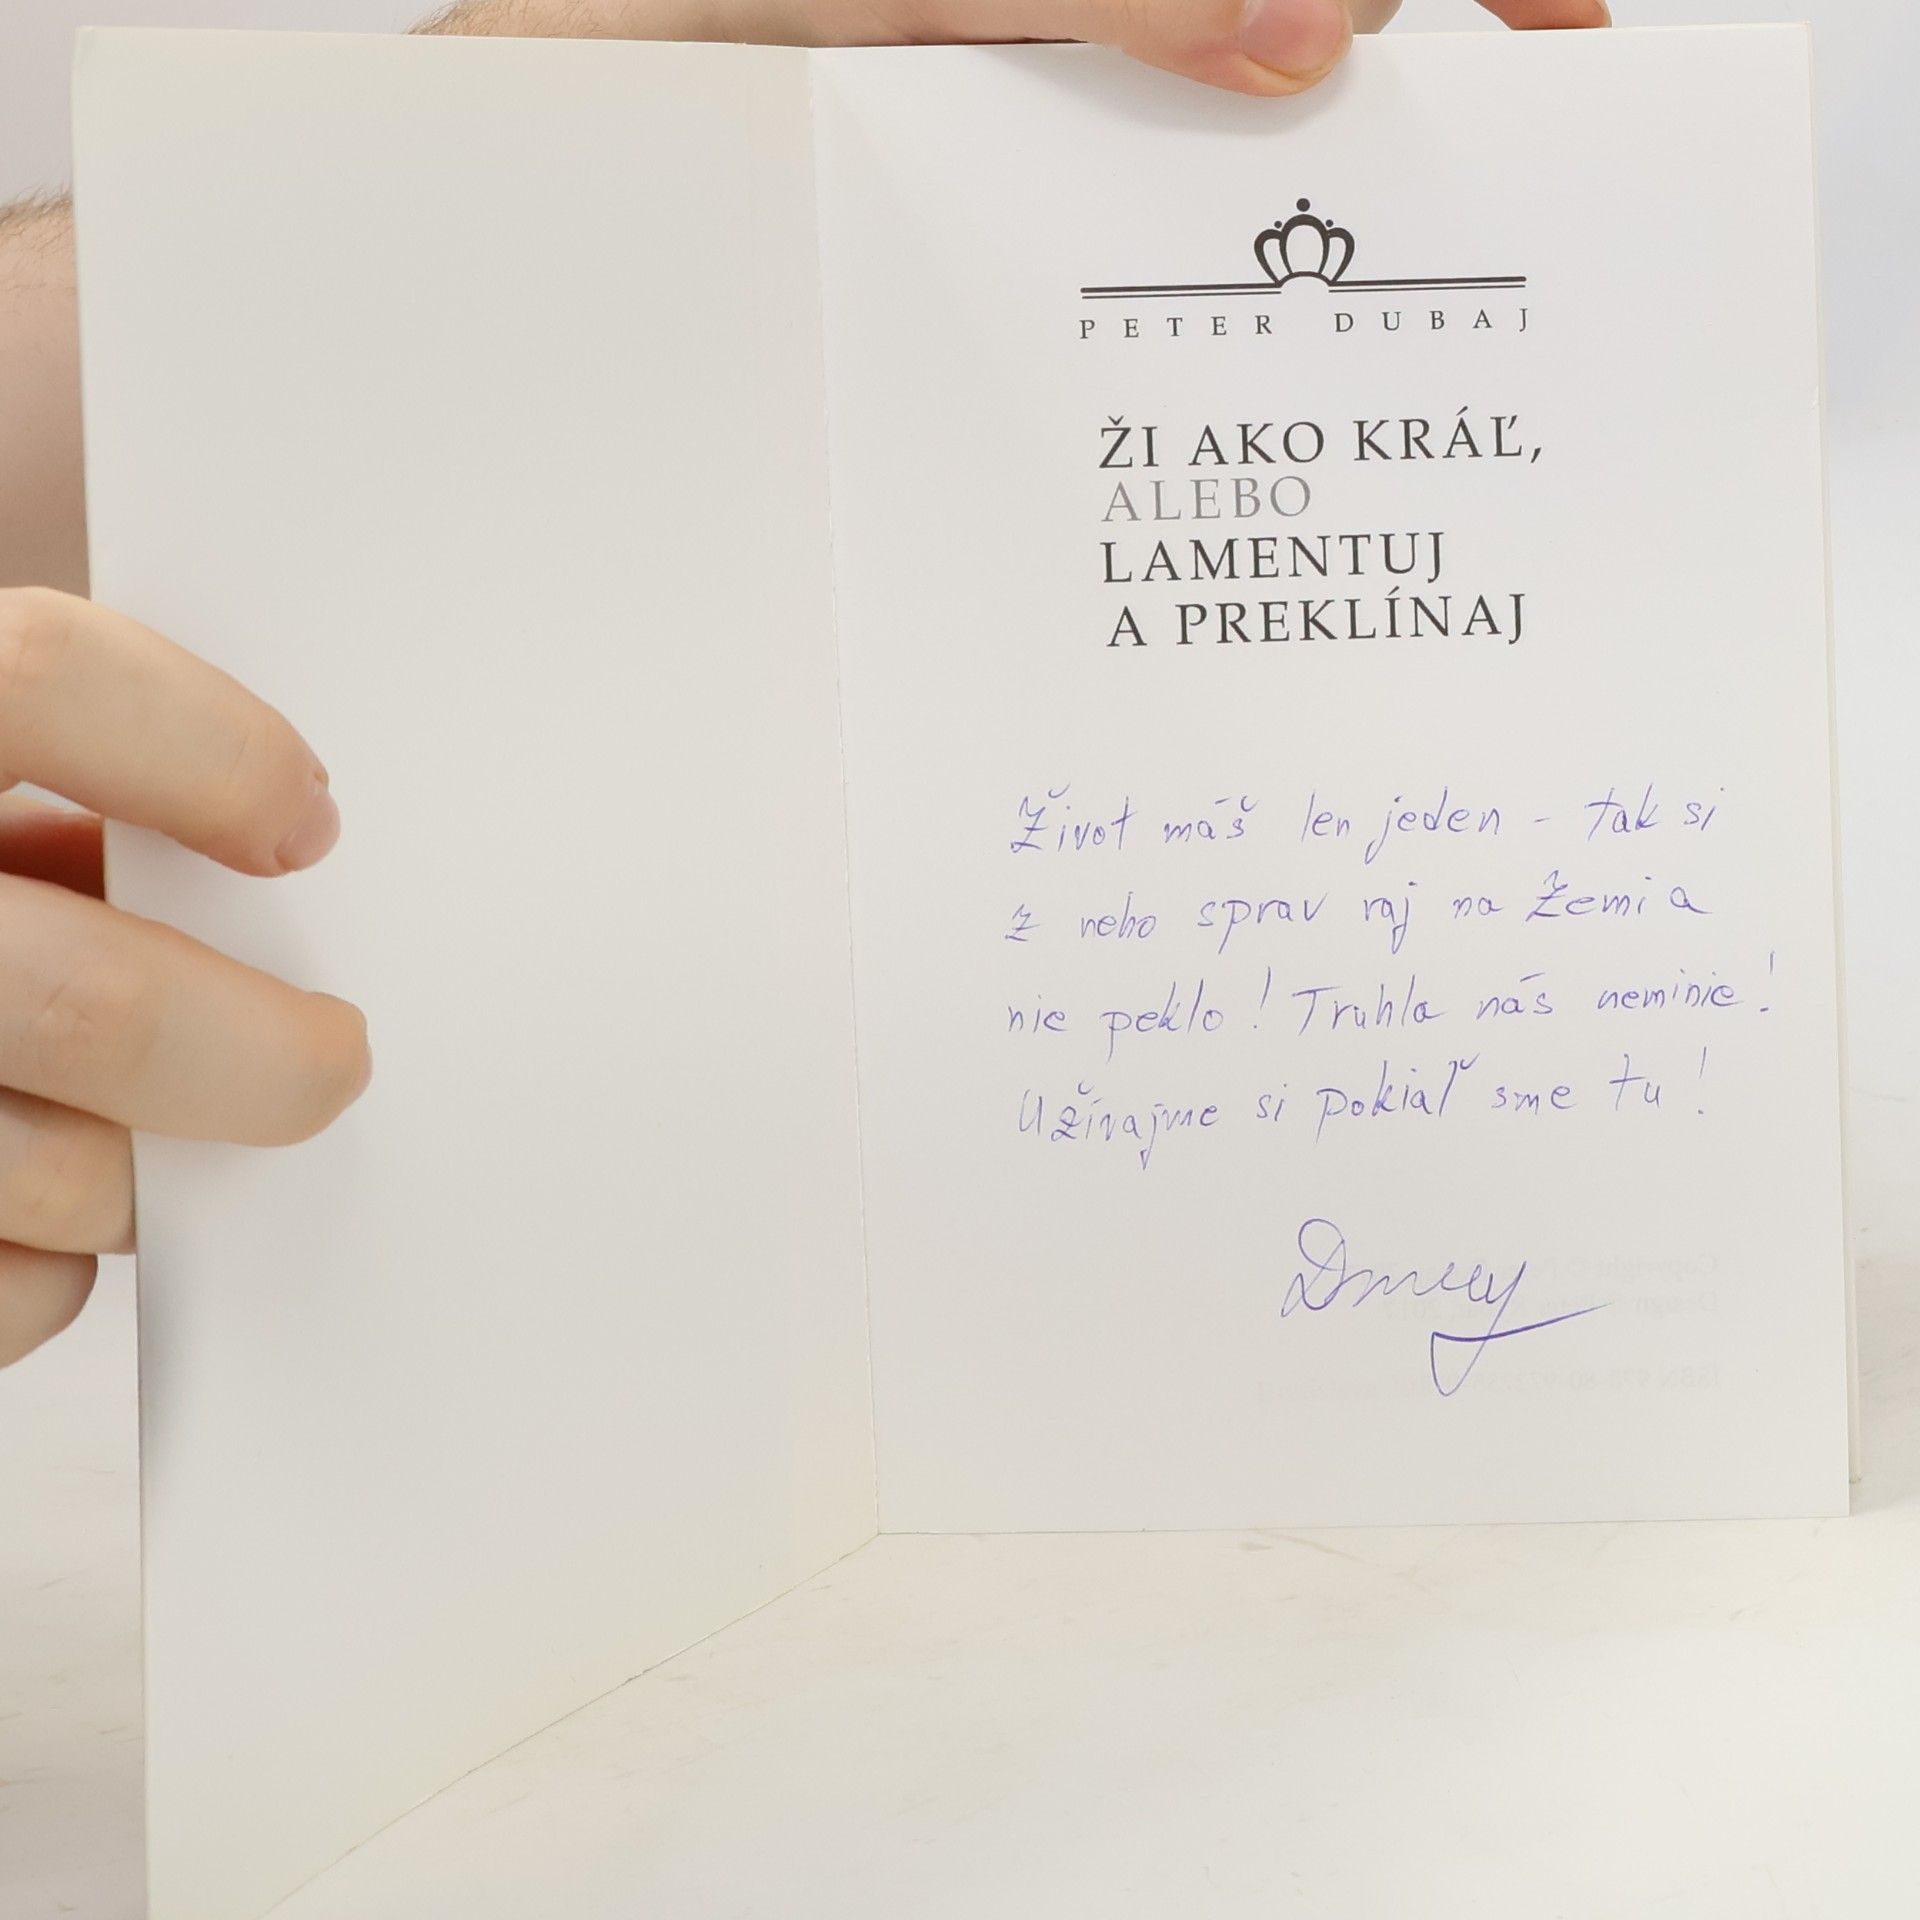 PETER DUBAJ
ŽI AKO KRÁĽ,
ALEBO
LAMENTUJ
A PREKLÍNAJ
Život máš len jeden - tak si
z neho sprav raj na Zemi a
nie peklo! Truhla nás neminie!
Užívajme si pokiaľ sme tu!